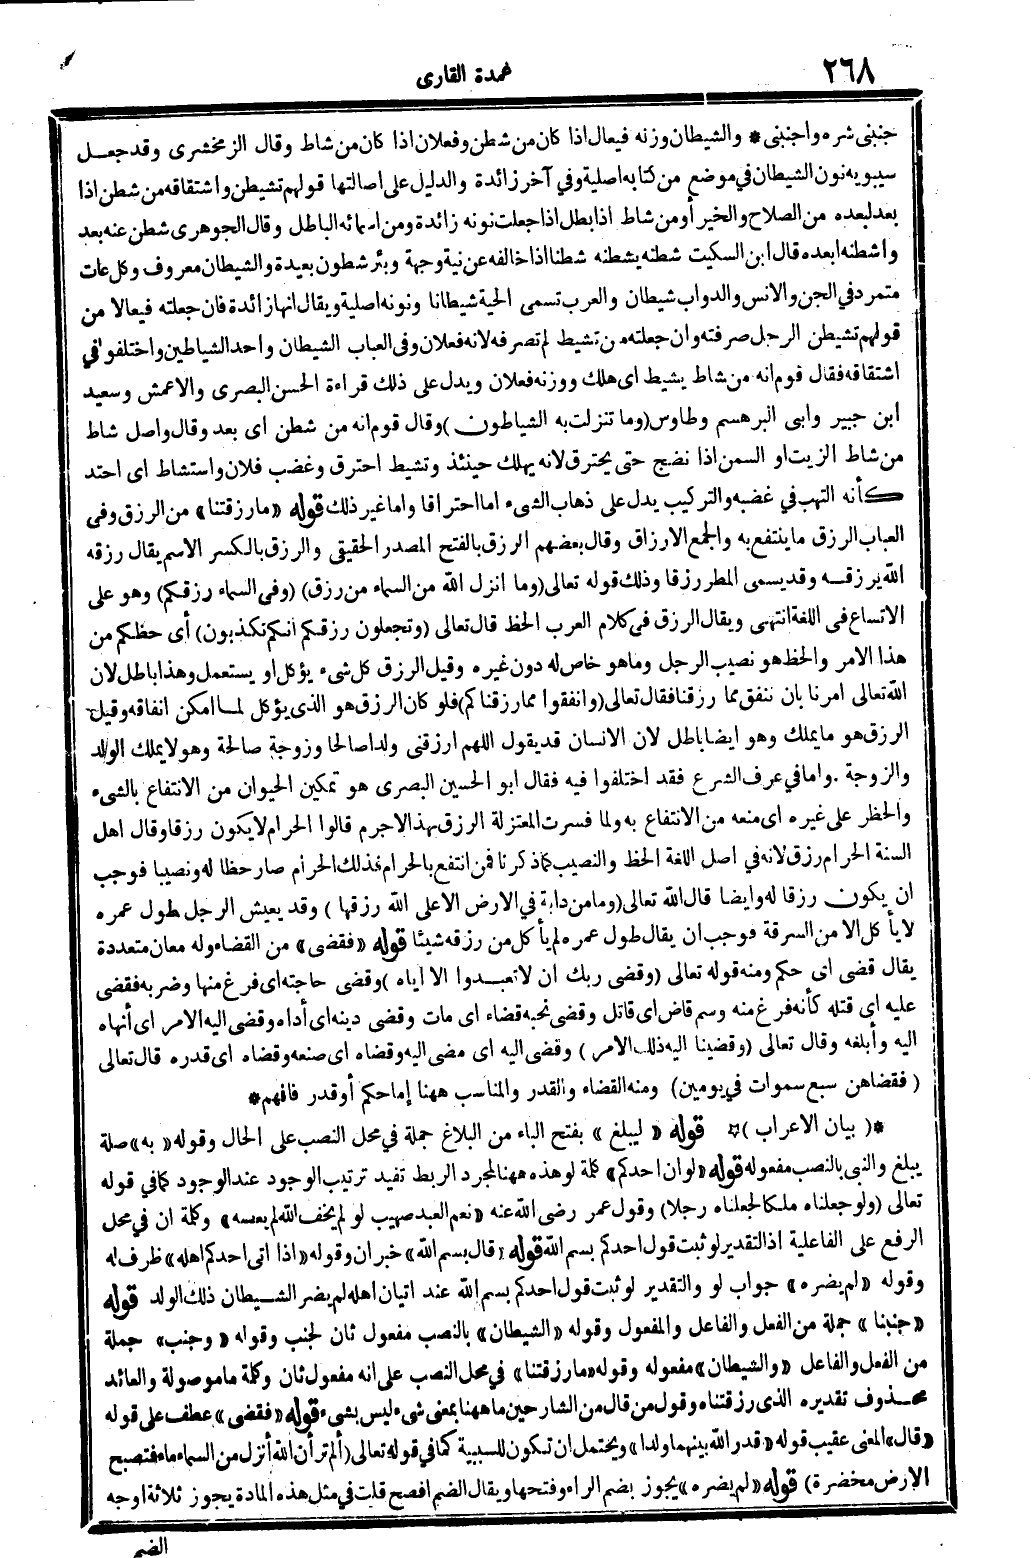 ٢٦٨
عمدة القارى
جنبنى شره واجنبنى * والشيطان وزنه فيعال اذا كان من شطن وفعلان اذا كان من شاط وقال الزمخشرى وقد جعل
سيبويه نون الشيطان في موضع من كتابه اصلية وفي آخر زائدة والدليل على اصالتها قولهم تشيطن واشتقاقه من شطن اذا
بعد لبعده من الصلاح والخير أو من شاط اذا بطل اذا جعلت نونه زائدة ومن اسمائه الباطل وقال الجوهرى شطن عنه بعد
واشطنه ابعده قال ابن السكيت شطنه يشطنه شطنا اذا خالفه عن نية وجهة وبئر شطون بعيدة والشيطان معروف وكل عات
متمرد في الجن والانس والدواب شيطان والعرب تسمى الحية شيطانا ونونه اصلية ويقال انها زائدة فان جعلته فيعالا من
قولهم تشيطن الرجل صرفته وان جعلته من تشيط لم تصرفه لانه فعلان وفى العباب الشيطان واحد الشياطين واختلفوا فى
اشتقاقه فقال قوم انه من شاط يشيط اى هلك ووزنه فعلان ويدل على ذلك قراءة الحسن البصرى والاعمش وسعيد
ابن جبير وابى البرهسم وطاوس (وما تنزلت به الشياطون) وقال قوم انه من شطن اى بعد وقال واصل شاط
من شاط الزيت او السمن اذا نضج حتى يحترق لانه يهلك حينئذ وتشيط احترق وغضب فلان واستشاط اى احتد
كأنه التهب في غضبه والتركيب يدل على ذهاب الشىء اما احتراقا واما غير ذلك قوله «ما رزقتنا» من الرزق وفى
العباب الرزق ما ينتفع به والجمع الارزاق وقال بعضهم الرزق بالفتح المصدر الحقيقى والرزق بالكسر الاسم يقال رزقه
الله يرزقه وقد يسمى المطر رزقا وذلك قوله تعالى (وما انزل الله من السماء من رزق) (وفى السماء رزقكم) وهو على
الاتساع فى اللغة انتهى ويقال الرزق فى كلام العرب الحظ قال تعالى (وتجعلون رزقكم انكم تكذبون) أى حظكم من
هذا الامر والحظ هو نصيب الرجل وما هو خاص له دون غيره وقيل الرزق كل شىء يؤكل او يستعمل وهذا باطل لان
الله تعالى امرنا بان ننفق مما رزقنا فقال تعالى (وانفقوا مما رزقناكم) فلو كان الرزق هو الذى يؤكل لما امكن انفاقه وقيل
الرزق هو ما يملك وهو ايضا باطل لان الانسان قد يقول اللهم ارزقنى ولدا صالحا وزوجة صالحة وهو لا يملك الولد
والزوجة . واما في عرف الشرع فقد اختلفوا فيه فقال ابو الحسين البصرى هو تمكين الحيوان من الانتفاع بالشىء
والحظر على غيره اى منعه من الانتفاع به ولما فسرت المعتزلة الرزق بهذا لاجرم قالوا الحرام لا يكون رزقا وقال اهل
السنة الحرام رزق لانه في اصل اللغة الحظ والنصيب كما ذكرنا فمن انتفع بالحرام فذلك الحرام صار حظا له ونصيبا فوجب
ان يكون رزقا له وايضا قال الله تعالى (وما من دابة في الارض الا على الله رزقها) وقد يعيش الرجل طول عمره
لا يأكل الا من السرقة فوجب ان يقال طول عمره لم يأكل من رزقه شيئا قوله «فقضى» من القضاء وله معان متعددة
يقال قضى اى حكم ومنه قوله تعالى (وقضى ربك ان لا تعبدوا الا اياه) وقضى حاجته اى فرغ منها وضربه فقضى
عليه اى قتله كأنه فرغ منه وسم قاض اى قاتل وقضى نحبه قضاء اى مات وقضى دينه اى أداه وقضى اليه الامر اى أنهاه
اليه وأبلغه وقال تعالى (وقضينا اليه ذلك الامر) وقضى اليه اى مضى اليه وقضاه اى صنعه وقضاه اى قدره قال تعالى
(فقضاهن سبع سموات في يومين) ومنه القضاء والقدر والمناسب ههنا إما حكم أو قدر فافهم *
*(بيان الاعراب)* قوله «ليبلغ» بفتح الباء من البلاغ جملة في محل النصب على الحال وقوله «به» صلة
يبلغ والنبى بالنصب مفعوله قوله «لو ان احدكم» كلمة لو هذه ههنا لمجرد الربط تفيد ترتيب الوجود عند الوجود كما في قوله
تعالى (ولو جعلناه ملكا لجعلناه رجلا) وقول عمر رضى الله عنه «نعم العبد صهيب لو لم يخف الله لم يعصه» وكلمة ان في محل
الرفع على الفاعلية اذ التقدير لو ثبت قول احدكم بسم الله قوله «قال بسم الله» خبر ان وقوله «اذا اتى احدكم اهله» ظرف له
وقوله «لم يضره» جواب لو والتقدير لو ثبت قول احدكم بسم الله عند اتيان اهله لم يضر الشيطان ذلك الولد قوله
«جنبنا» جملة من الفعل والفاعل والمفعول وقوله «الشيطان» بالنصب مفعول ثان لجنب وقوله «وجنب» جملة
من الفعل والفاعل «والشيطان» مفعوله وقوله «ما رزقتنا» في محل النصب على انه مفعول ثان وكلمة ما موصولة والعائد
محذوف تقديره الذى رزقتناه وقول من قال من الشارحين ما ههنا بمعنى شىء ليس بشىء قوله «فقضى» عطف على قوله
«قال» المعنى عقيب قوله «قدر الله بينهما ولدا» ويحتمل ان تكون للسببية كما في قوله تعالى (ألم تر أن الله أنزل من السماء ماء فتصبح
الارض مخضرة) قوله «لم يضره» يجوز بضم الراء وفتحها ويقال الضم افصح قلت في مثل هذه المادة يجوز ثلاثة اوجه
الضم